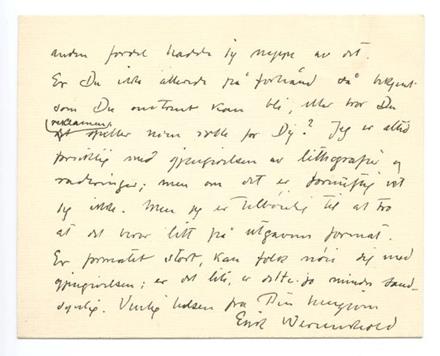 anden fordel hadde jeg neppe av det.
Er Du ikke allerede på forhånd så bekjent
som Du omtrent kan bli, eller tror Du
reklamen
at spiller nogen rolle for Dig? Jeg er altid
forsiktig med gjengivelsen av lithografier og
raderinger; men om det er fornuftig vet
jeg ikke. Men jeg er tilbøielig til at tro
at det beror litt på utgavens format.
Er formatet stort, kan folk nøie sig med
gjengivelsen; er det lite, er dette jo mindre sand-
synlig. Venlig hilsen fra Din hengivne
Erik Werenskiold